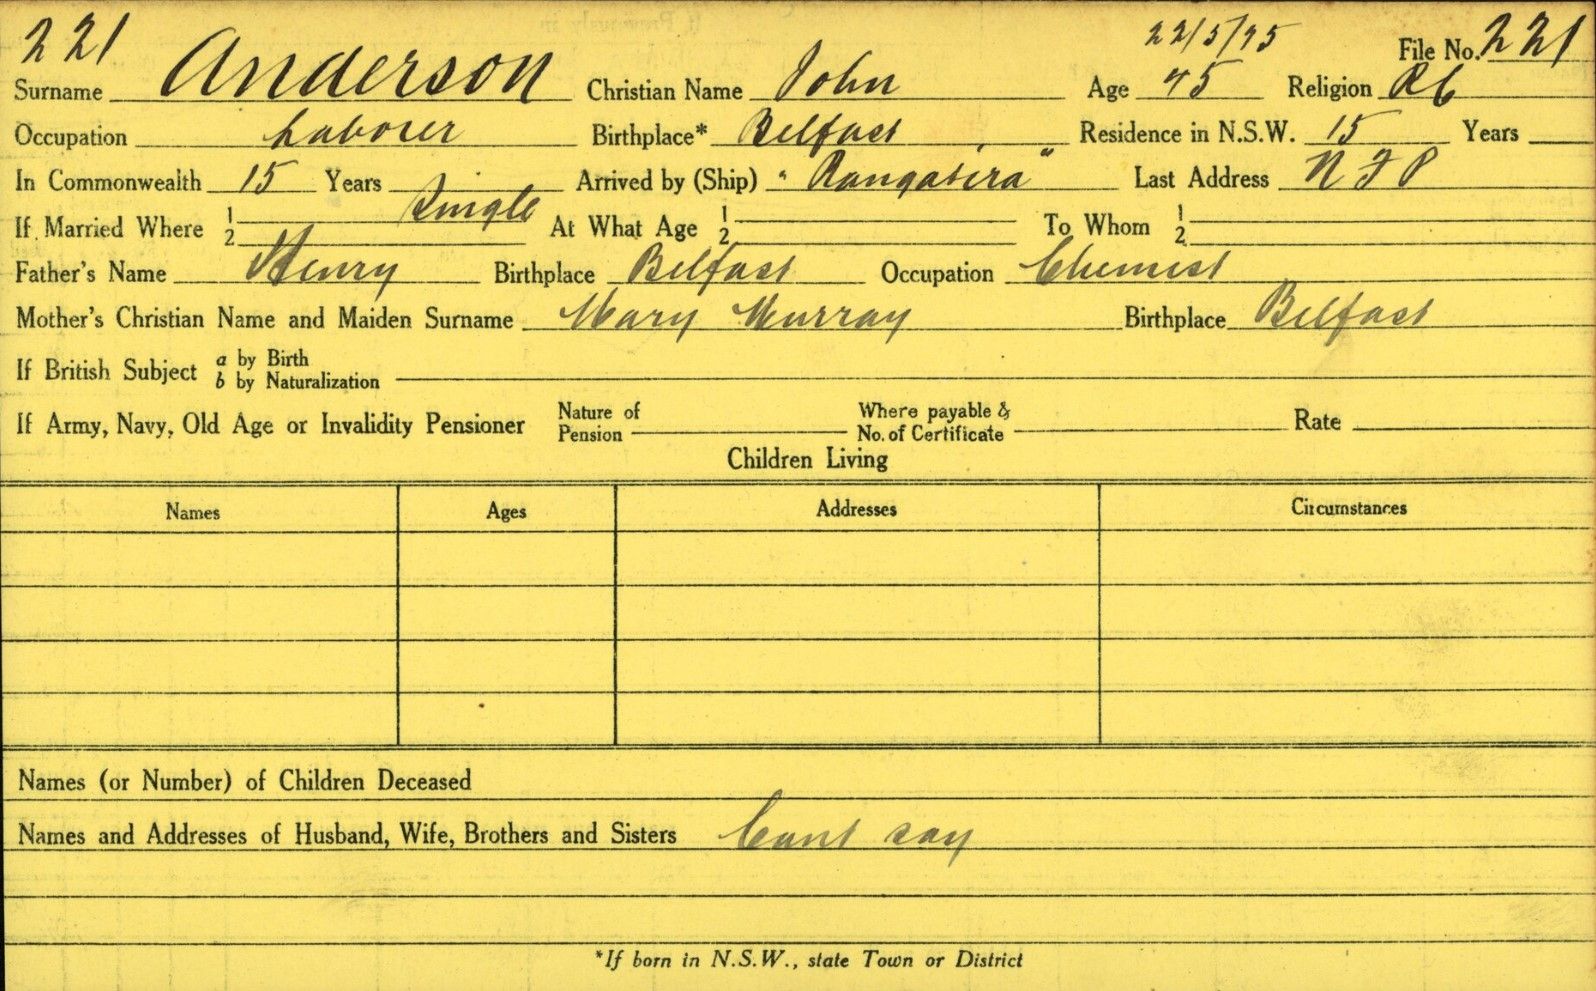 221 22/5/75 File No. 221
Surname Anderson Christian Name John Age 45 Religion RC
Occupation Laborer Birthplace* Belfast Residence in N.S.W. 15 Years
In Commonwealth 15 Years Arrived by (Ship) "Rangatira" Last Address N F P
If Married Where 1 2 Single At What Age 1 2 To Whom 1 2
Father's Name Henry Birthplace Belfast Occupation Chemist
Mother's Christian Name and Maiden Surname Mary Murray Birthplace Belfast
If British Subject a by Birth
b by Naturalization
If Army, Navy, Old Age or Invalidity Pensioner Nature of Pension Where payable & No. of Certificate Rate
Children Living
Names Ages Addresses Circumstances
Names (or Number) of Children Deceased
Names and Addresses of Husband, Wife, Brothers and Sisters Cant say
*If born in N.S.W., state Town or District